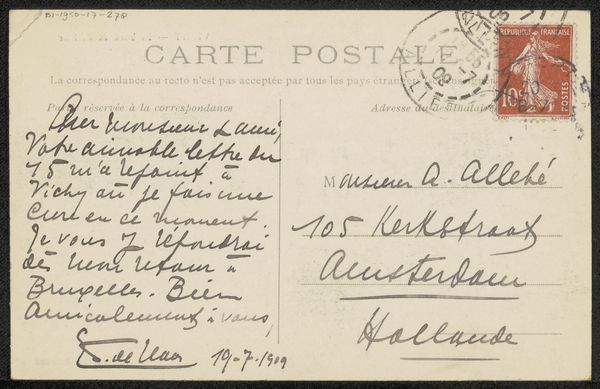 BI-1950-17-27@
CARTE POSTALE
La correspondance au recto n'est pas acceptée par tous les pays étrangers
Partie réservée à la correspondance
Adresse du destinataire
REPUBLIQUE FRANÇAISE
10c
POSTES
VICHY
ALLIER
09
Cher Monsieur & ami,
Votre aimable lettre du
15 m'a rejoint à
Vichy où je fais une
Cure en ce moment.
Je vous y répondrai
dès mon retour à
Bruxelles. Bien
Amicalement à vous,
19-7-1909
Monsieur A. Allebé
105 Kerkstraat
Amsterdam
Hollande